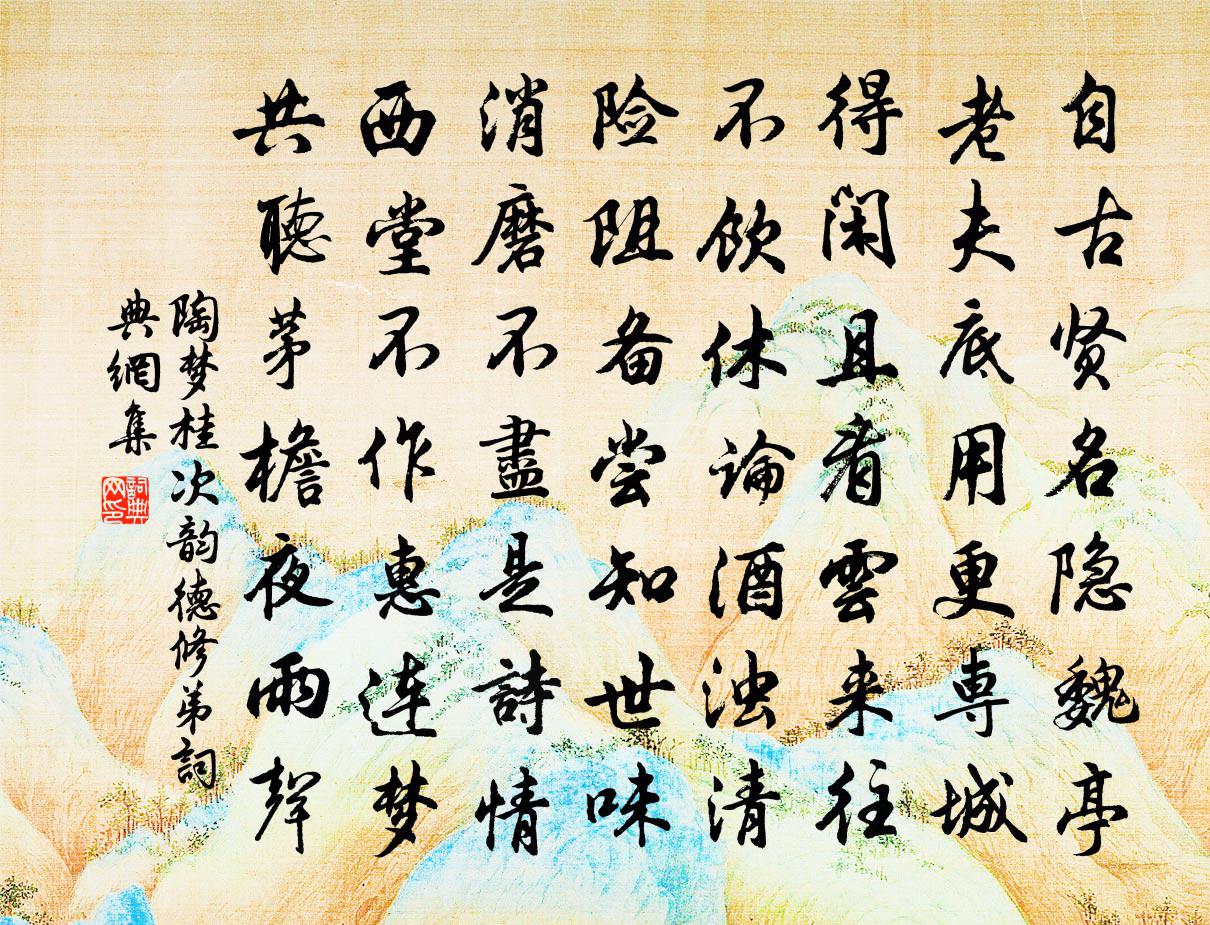 自古贤名隐魏亭
老夫底用更専城
得闲且看雲来往
不飲休論酒浊清
险阻备尝知世味
消磨不盡是詩情
西堂不作惠连梦
共聽茅檐夜雨聲
陶梦桂次韵德修弟詞
典網集
詞典网印